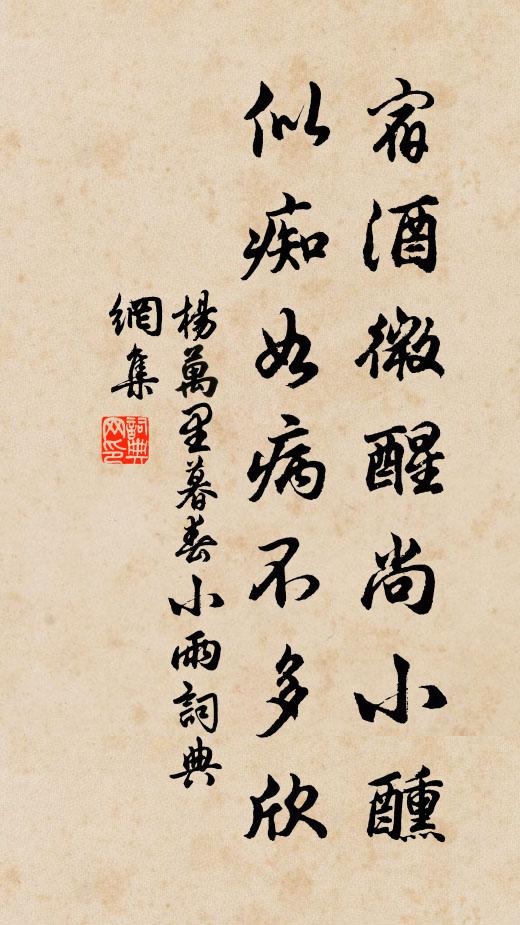 宿酒微醒尚小醺
似痴如病不多欣
楊萬里暮春小雨詞典
網集
詞典
网印